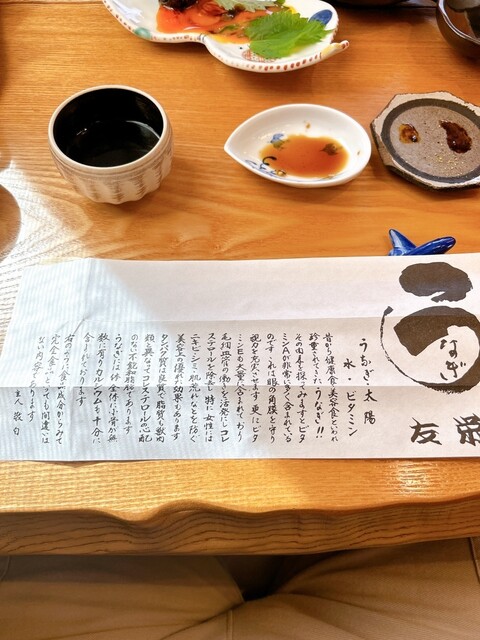 うなぎ
友栄
うなぎ・太陽
水・ビタミン
昔から健康食、美容食といわれ
珍重されてきたうなぎ!!
その内容を探ってみますとビタ
ミンAが非常に多く含まれている
のです これは眼の角膜を守り
視力を充実させます 更にビタ
ミンEも大量に含まれており
毛細血流の働きを活発にしコレ
ステロールを除去し 特に女性には
ニキビ、シミ、肌荒れなどを防ぐ
美容上の優れた効果もあります
タンパク質は良質で脂質も獣肉
類と異なってコレステロールの心配
のない不飽和脂肪であります
うなぎには体全体に小骨が無
数に有りカルシウムも十分に
含まれております
完全食品といっても間違いは
ない内容であります
主人敬白